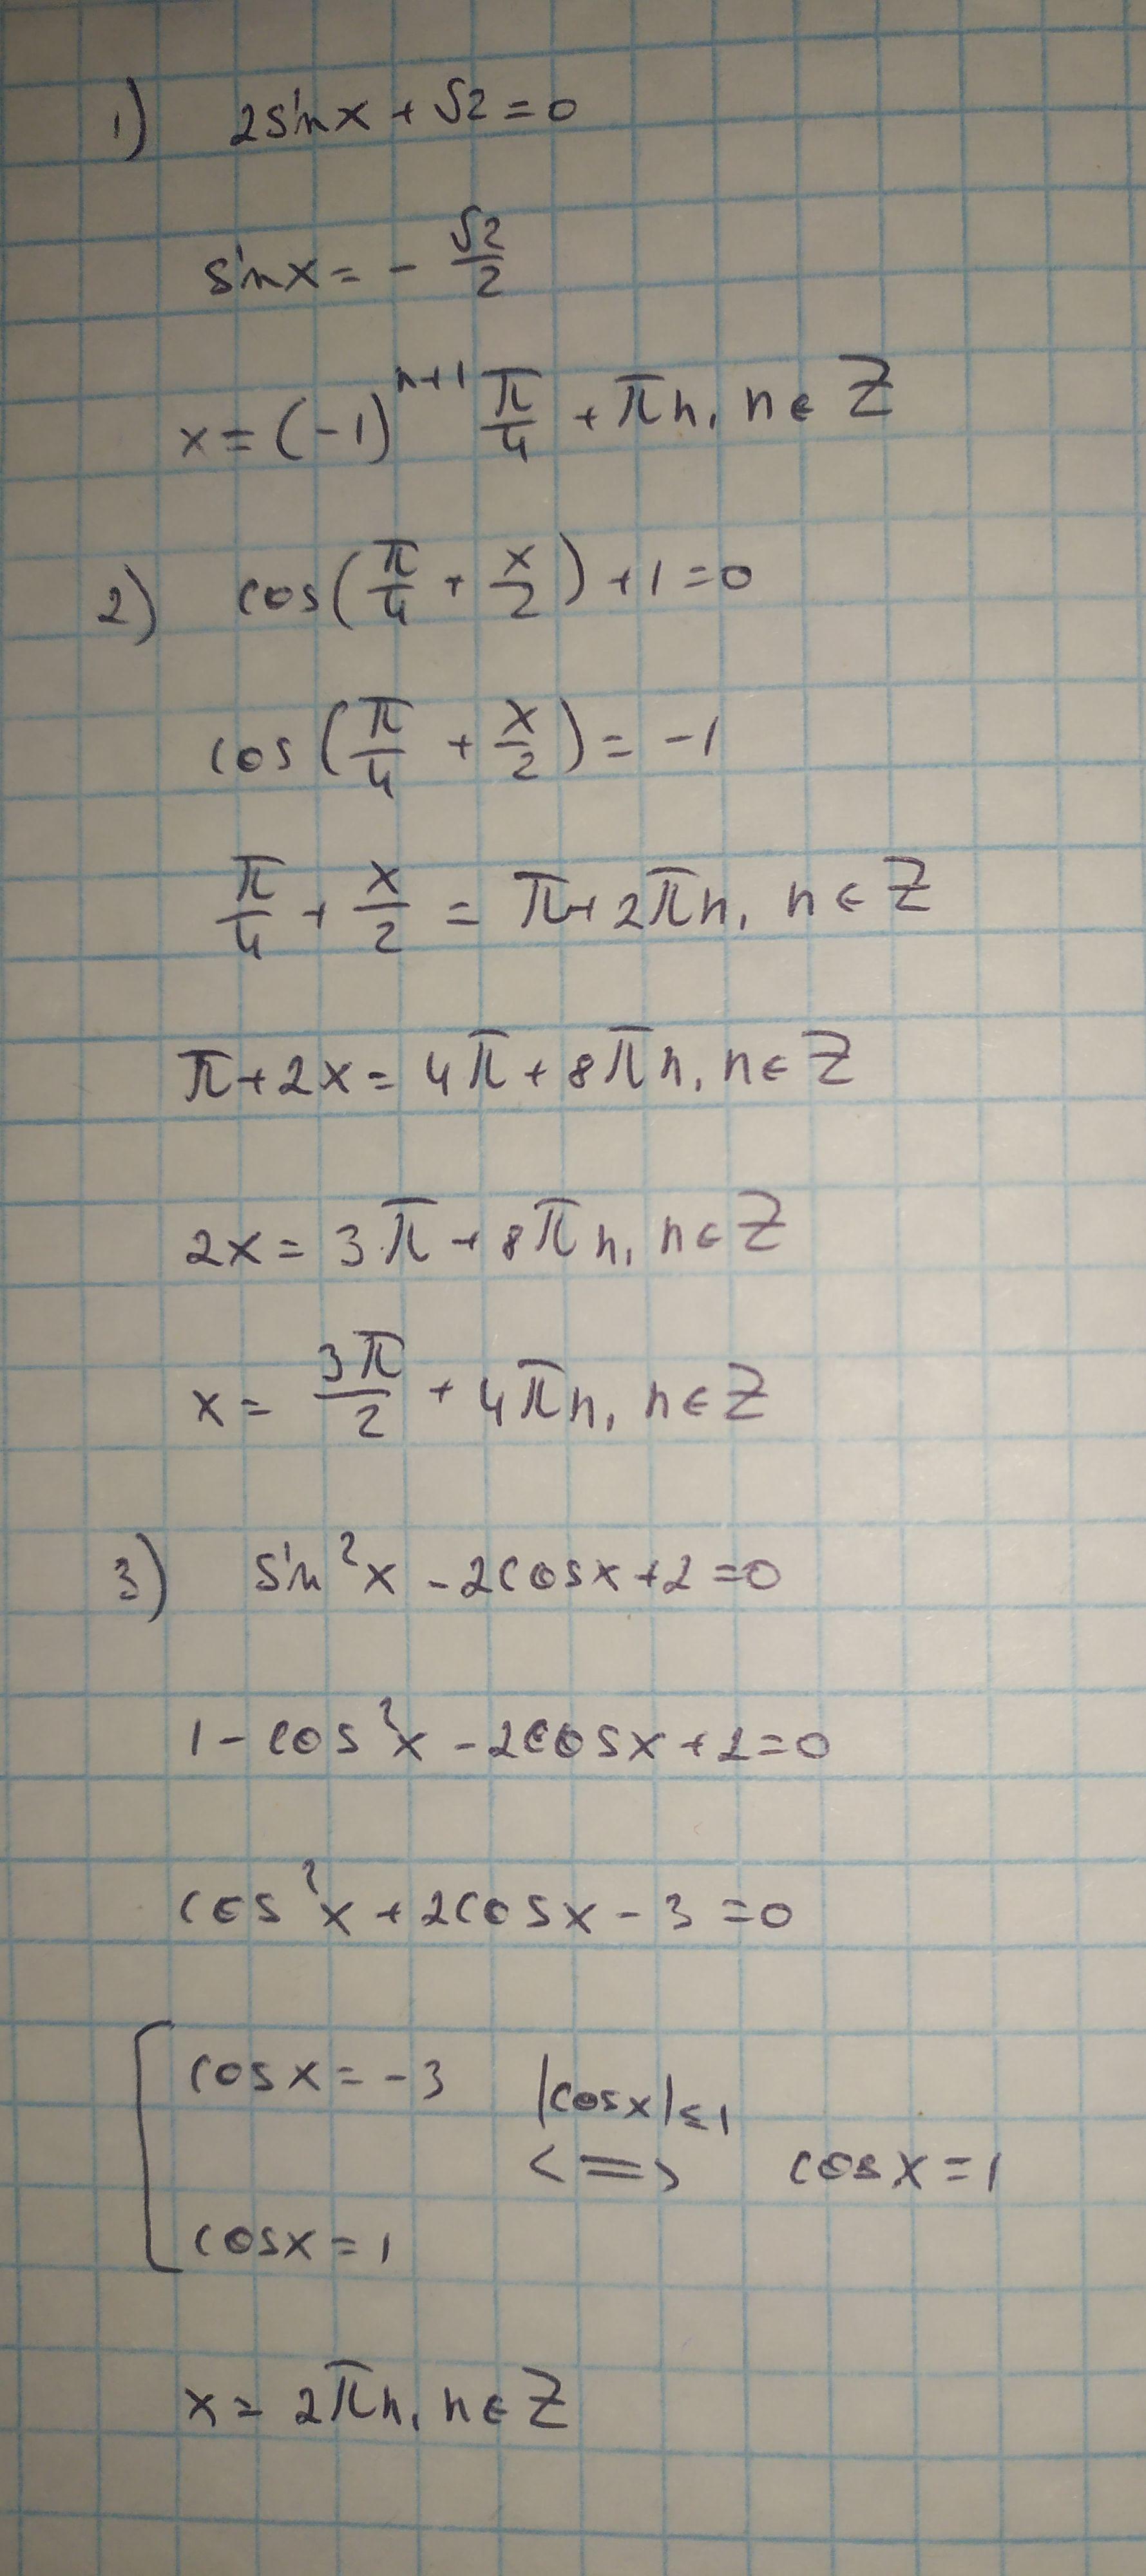 1) 2sinx + √2 = 0
sinx = - √2/2
x = (-1)^(n+1) π/4 + πn, n ∈ Z
2) cos(π/4 + x/2) + 1 = 0
cos(π/4 + x/2) = -1
π/4 + x/2 = π + 2πn, n ∈ Z
π + 2x = 4π + 8πn, n ∈ Z
2x = 3π + 8πn, n ∈ Z
x = 3π/2 + 4πn, n ∈ Z
3) sin²x - 2cosx + 2 = 0
1 - cos²x - 2cosx + 2 = 0
cos²x + 2cosx - 3 = 0
[ cosx = -3 |cosx| ≤ 1
<=> cosx = 1
cosx = 1
x = 2πn, n ∈ Z